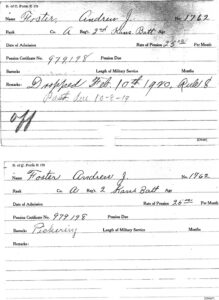 Name Foster, Andrew J. No. 1762
Rank Co. A Reg't. 2nd Kans Batt Age
Date of Admission Rate of Pension 25.00 Per Month
Pension Certificate No. 979198 Pension Due
Bywords Length of Military Service Months
Remarks: Dropped Feb. 10th 1920, Rule 8
10-8-19
off
Name Foster Andrew J. No. 1962
Rank Co. A Reg't. 2 Kans Batt Age
Date of Admission Rate of Pension 25.00 Per Month
Pension Certificate No. 979198 Pension Due
Pickering Length of Military Service Months
Remarks: